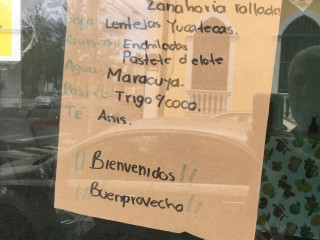 Zanahoria rallada
Sopa Lentejas Yucatecas.
Guisos Enchiladas
Pastel d elote
Agua Maracuya.
Postre Trigo y coco.
Te Anis.
!! Bienvenidos !!
!! Buenprovecho !!